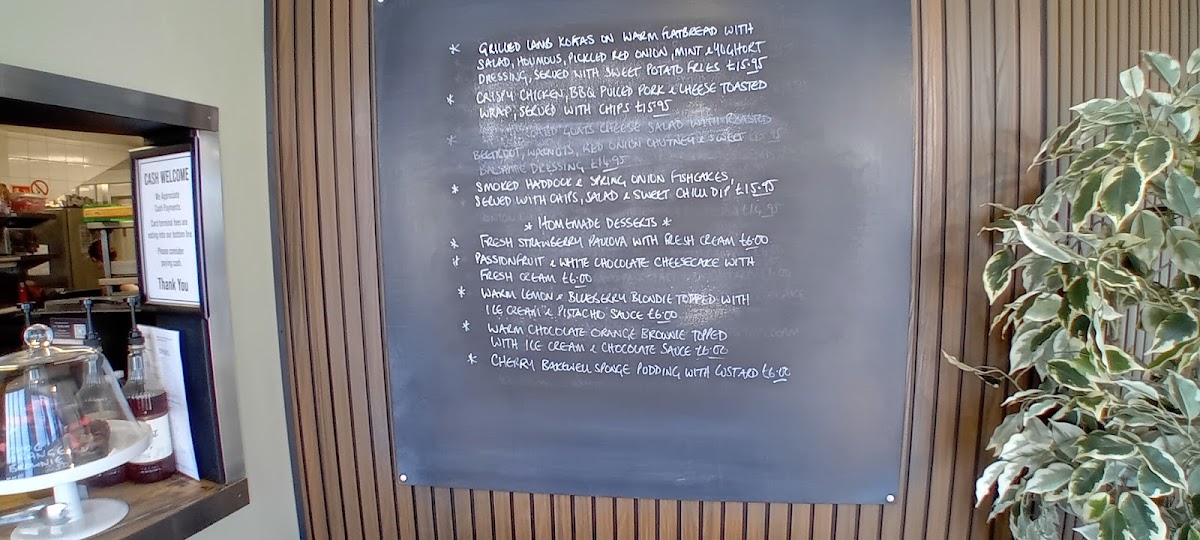 * GRILLED LAMB KOFTAS ON WARM FLATBREAD WITH
SALAD, HOUMOUS, PICKLED RED ONION, MINT & YOGHORT
DRESSING, SERVED WITH SWEET POTATO FRIES £15.95
* CRISPY CHICKEN, BBQ PULLED PORK & CHEESE TOASTED
WRAP, SERVED WITH CHIPS £15.95
* GOATS CHEESE SALAD WITH ROASTED
BEETROOT, WALNUTS, RED ONION CHUTNEY & SWEET
BALSAMIC DRESSING £14.95
* SMOKED HADDOCK & SPRING ONION FISHCAKES,
SERVED WITH CHIPS, SALAD & SWEET CHILLI DIP £15.95
* HOMEMADE DESSERTS *
* FRESH STRAWBERRY PAVLOVA WITH FRESH CREAM £6.00
* PASSIONFRUIT & WHITE CHOCOLATE CHEESECAKE WITH
FRESH CREAM £6.00
* WARM LEMON & BLUEBERRY BLONDIE TOPPED WITH
ICE CREAM & PISTACHIO SAUCE £6.00
* WARM CHOCOLATE ORANGE BROWNIE TOPPED
WITH ICE CREAM & CHOCOLATE SAUCE £6.00
* CHERRY BAKEWELL SPONGE PUDDING WITH CUSTARD £6.00
CASH WELCOME
We Appreciate
Cash Payments.
Card terminal fees are
eating into our bottom line.
Please consider
paying cash.
Thank You
ORANGE
BROWNIE